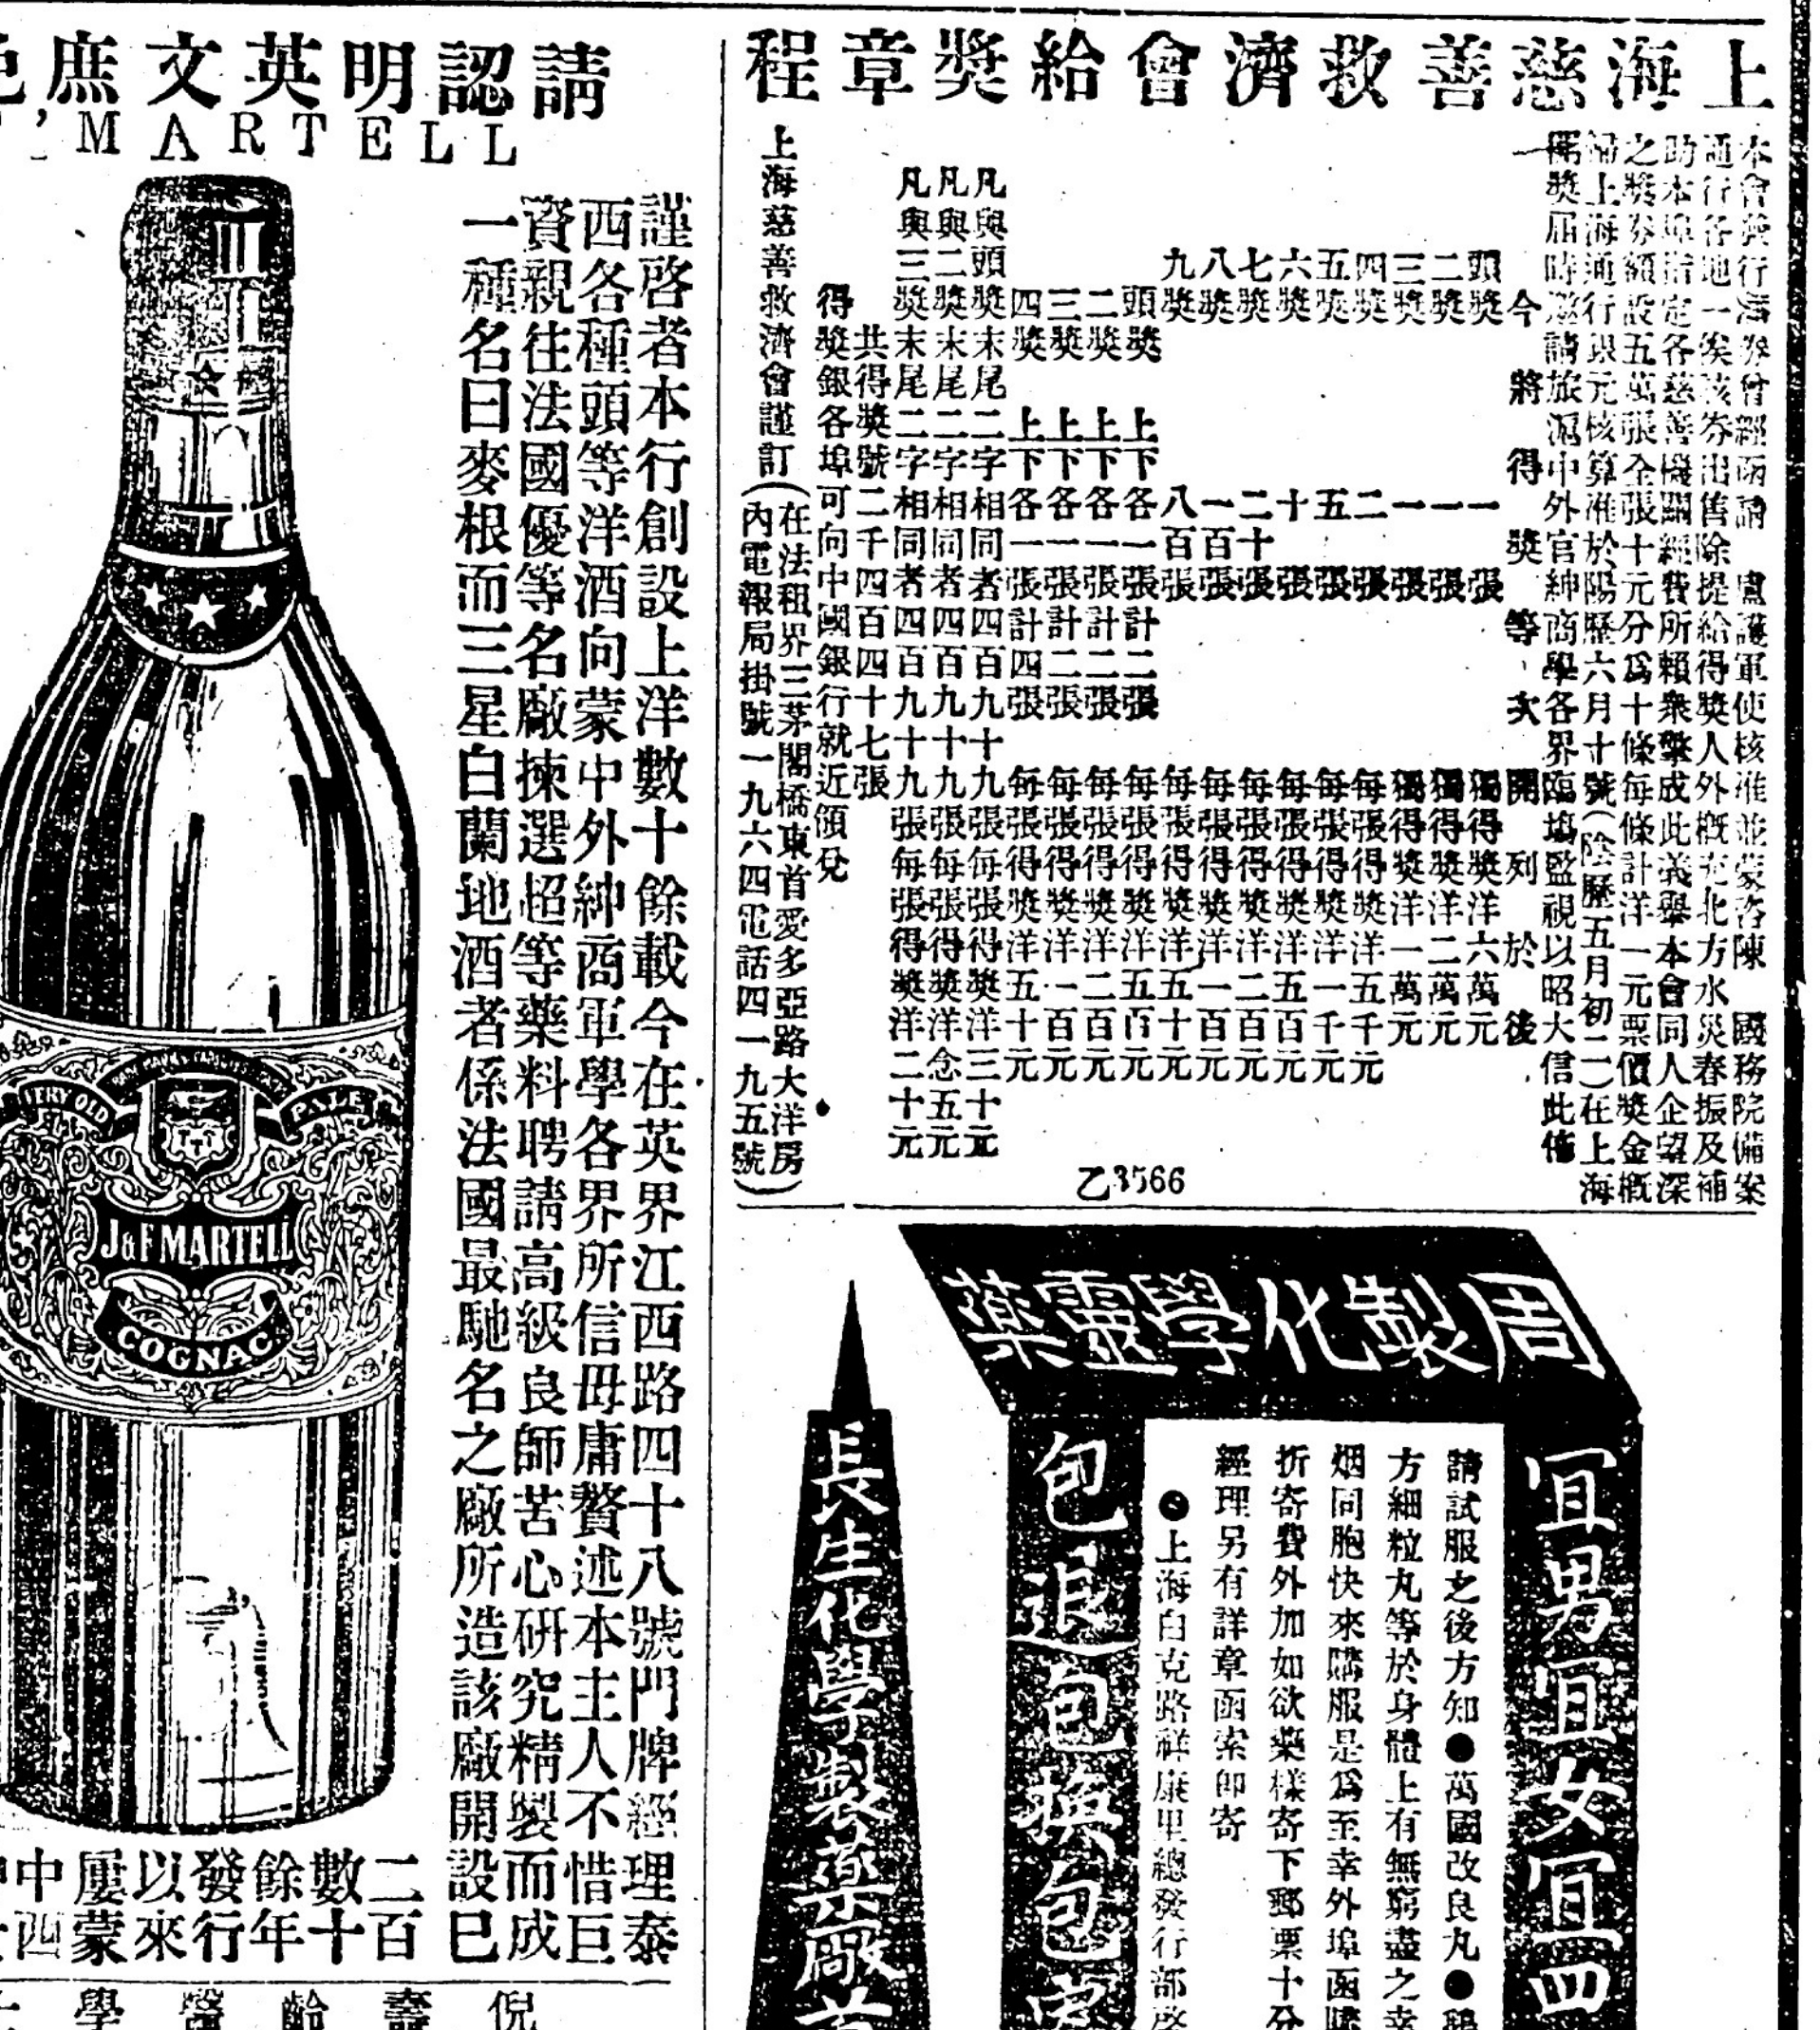 上海慈善救濟會給獎章程
本會發行濟券曾經函請 盧護軍使核准並蒙咨陳 國務院備案
通行各地一俟該券出售除提給得獎人外概充北方水災春振及補
助本埠指定各慈善機關經費所賴衆擎成此義舉本會同人企望深
之獎券額設五萬張全張十元分爲十條每條計洋一元票價獎金概
歸上海通行銀元核算准於陽歷六月十號(陰歷五月初二)在上海
開獎屆時邀請旅滬中外官紳商學各界臨場監視以昭大信此佈
今將得獎等次開列於後
頭獎 一張 獨得獎洋六萬元
二獎 一張 獨得獎洋二萬元
三獎 一張 獨得獎洋一萬元
四獎 二張 每張得獎洋五千元
五獎 五張 每張得獎洋一千元
六獎 十張 每張得獎洋五百元
七獎 二十張 每張得獎洋二百元
八獎 一百張 每張得獎洋一百元
九獎 八百張 每張得獎洋五十元
頭獎 上下各一張計二張 每張得獎洋五百元
二獎 上下各一張計二張 每張得獎洋二百元
三獎 上下各一張計二張 每張得獎洋一百元
四獎 上下各一張計四張 每張得獎洋五十元
凡與頭獎末尾二字相同者四百九十九張每張得獎洋三十元
凡與二獎末尾二字相同者四百九十九張每張得獎洋念五元
凡與三獎末尾二字相同者四百九十九張每張得獎洋二十元
共得獎號二千四百四十七張
得獎銀各埠可向中國銀行就近領兌
上海慈善救濟會謹訂
(在法租界三茅閣橋東首愛多亞路大洋房
內電報局掛號一九六四電話四一九五號)
乙3566
請認明英文庶
'MARTELL
謹啓者本行創設上洋數十餘載今在英界江西路四十八號門牌經理泰
西各種頭等洋酒向蒙中外紳商軍學各界所信毋庸贅述本主人不惜巨
資親往法國優等名廠揀選超等藥料聘請高級良師苦心研究精製而成
一種名曰麥根而三星白蘭地酒者係法國最馳名之廠所造該廠開設已
二百
數十
餘年
發行
以來
屢蒙
中西
VERY OLD
PALE
J&F MARTELL
COGNAC
周製化學靈藥
宜男宜女宜四
請試服之後方知●萬國改良丸●
方細粒丸等於身體上有無窮盡之幸
烟同胞快來購服是爲至幸外埠函購
折寄費外加如欲藥樣寄下郵票十分
經理另有詳章函索即寄
●上海白克路祥康里總發行部啓
包退包換包
長生化學製藥廠
倪
壽
齡
醫
學